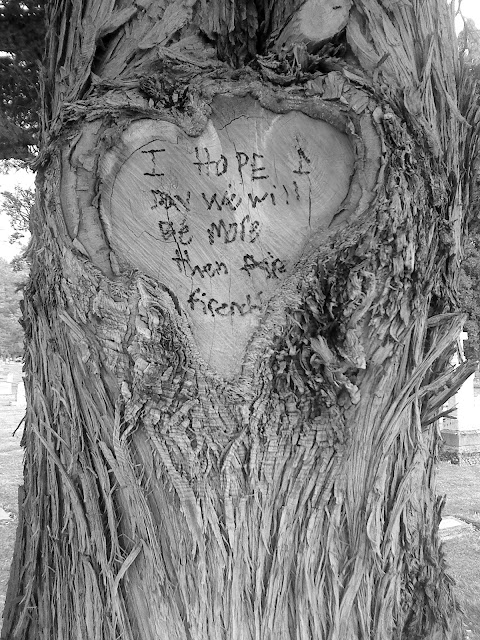 I HOPE 1
DAY we will
BE MORE
then
Firends